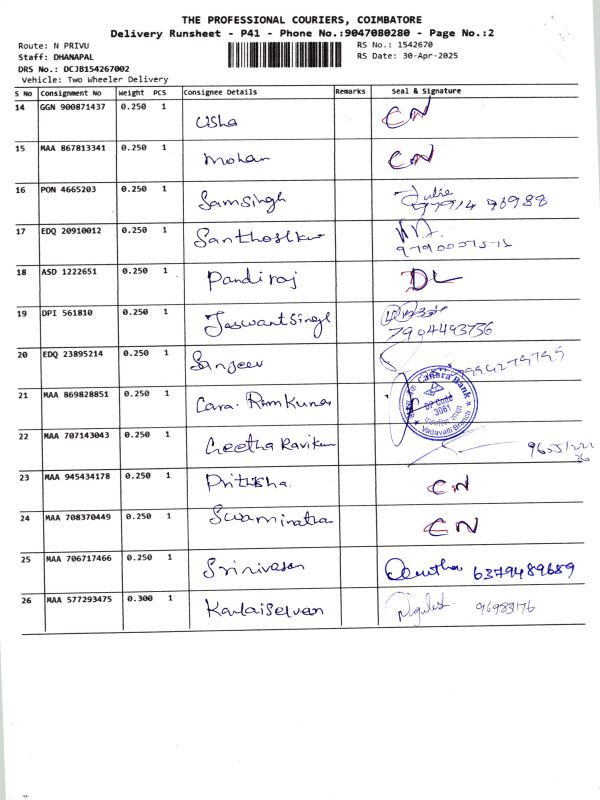 THE PROFESSIONAL COURIERS, COIMBATORE
Delivery Runsheet - P41 - Phone No.:9047080280 - Page No.:2
Route: N PRIVU RS No.: 1542670
Staff: DHANAPAL RS Date: 30-Apr-2025
DRS No.: DCJB154267002
Vehicle: Two Wheeler Delivery
S No Consignment No Weight PCS Consignee Details Remarks Seal & Signature
14 GGN 900871437 0.250 1 Usha CN
15 MAA 867813341 0.250 1 Mohan CN
16 PON 4665203 0.250 1 Samsingh
17 EDQ 20910012 0.250 1
18 ASD 1222651 0.250 1 Pandiraj DL
19 DPI 561810 0.250 1 Jaswantsingh
7904493756
20 EDQ 23895214 0.250 1 Sanjeev
21 MAA 869828851 0.250 1 Cara: Ramkumar Canara Bank
DP Code
3061
Vadavalli Branch
22 MAA 707143043 0.250 1 Geetha Ravikum
23 MAA 945434178 0.250 1 CN
24 MAA 708370449 0.250 1 Swaminathan CN
25 MAA 706717466 0.250 1 Srinivasan 6379489689
26 MAA 577293475 0.300 1 Kalaiselvan 96983176